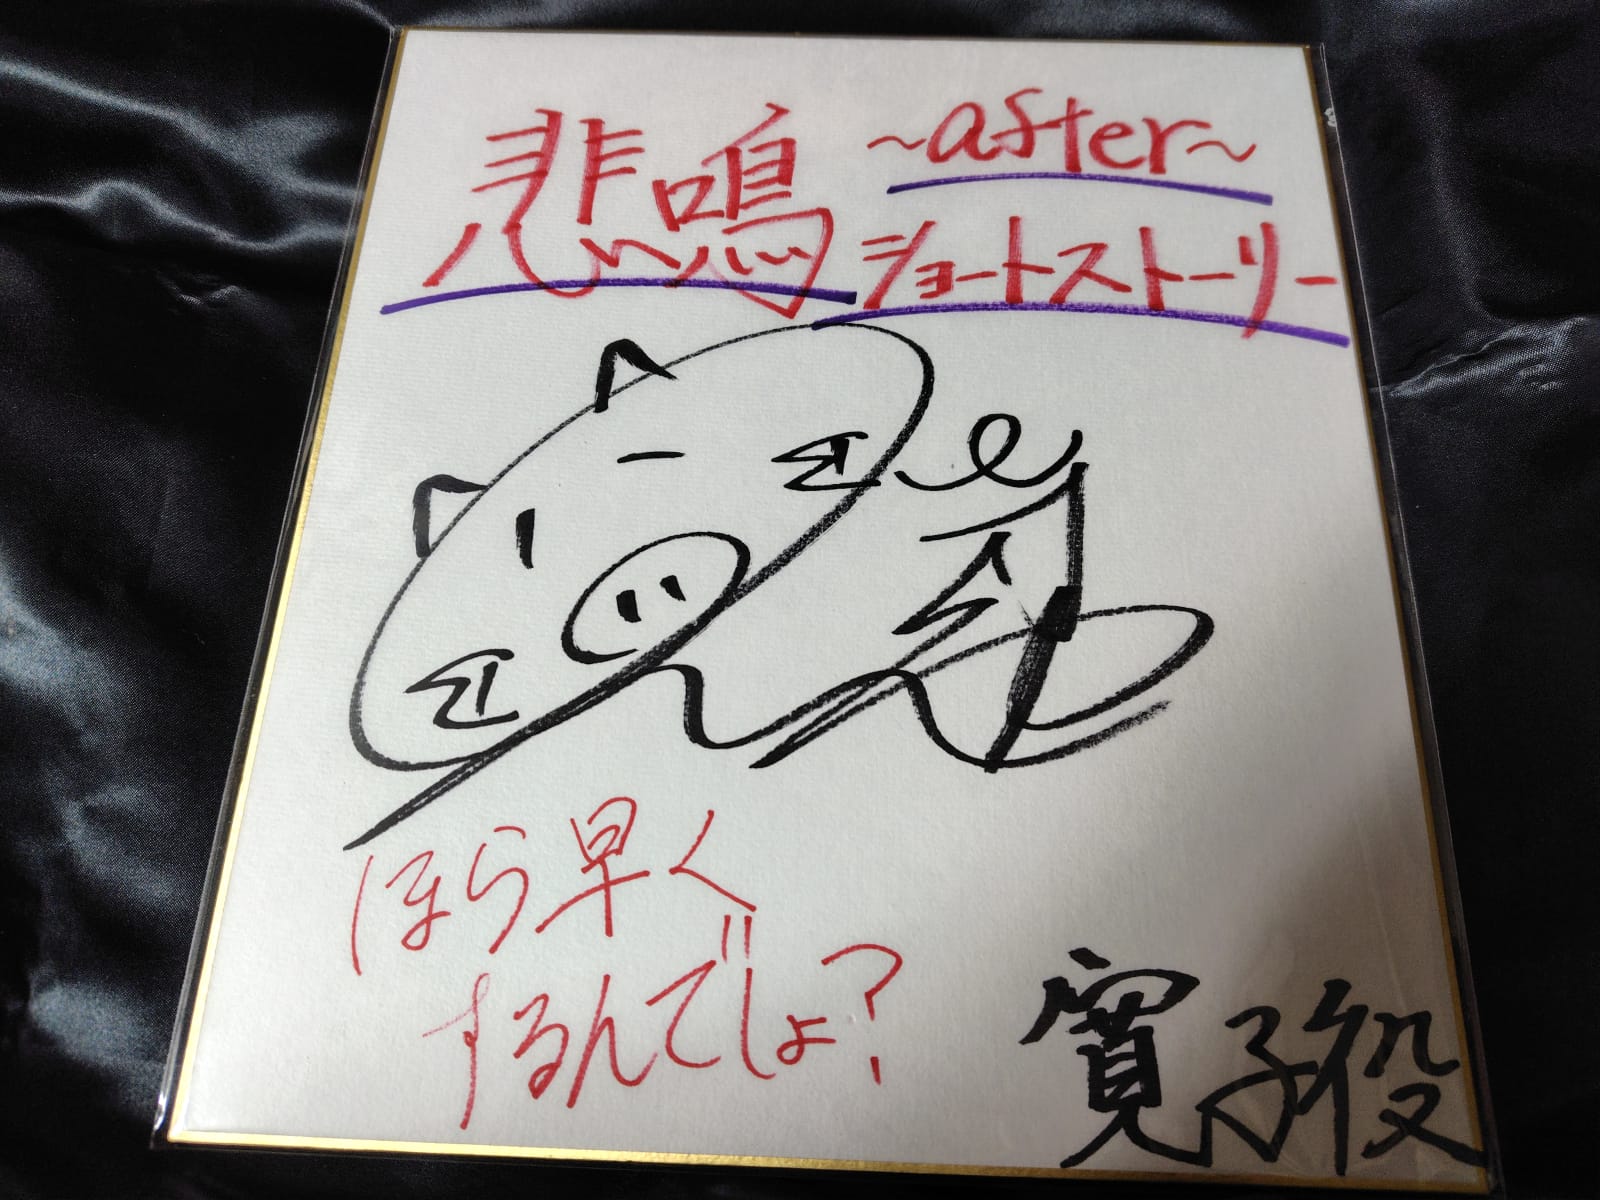 悲鳴 ~after~
ショートストーリー
ほら早く
するんでしょ?
寛子役